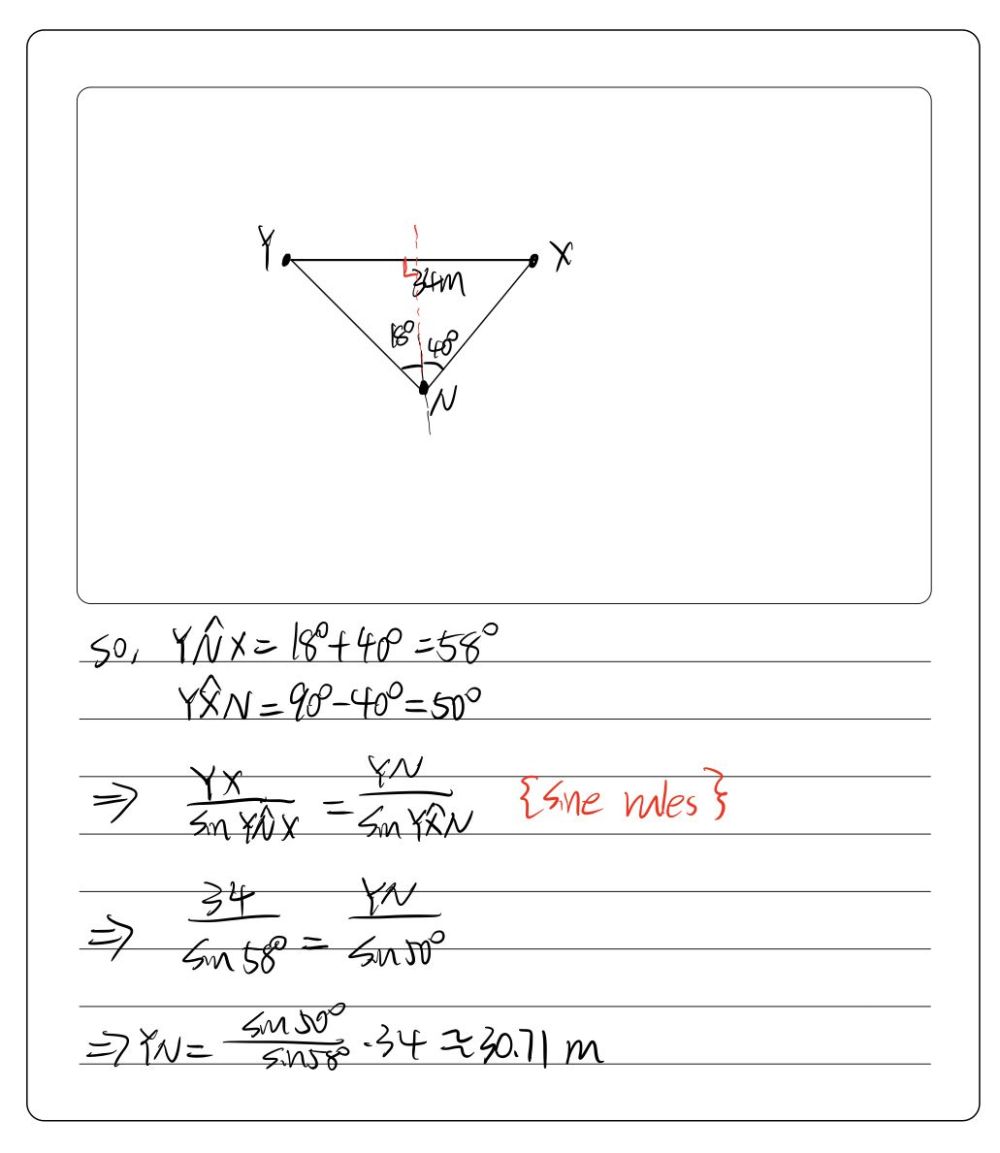 Y X
34m
18° 40°
N
so, YN̂X = 18° + 40° = 58°
YX̂N = 90° - 40° = 50°
⇒ YX / sin YN̂X = YN / sin YX̂N {sine rules}
⇒ 34 / sin 58° = YN / sin 50°
⇒ YN = sin 50° / sin 58° · 34 ≈ 30.71 m